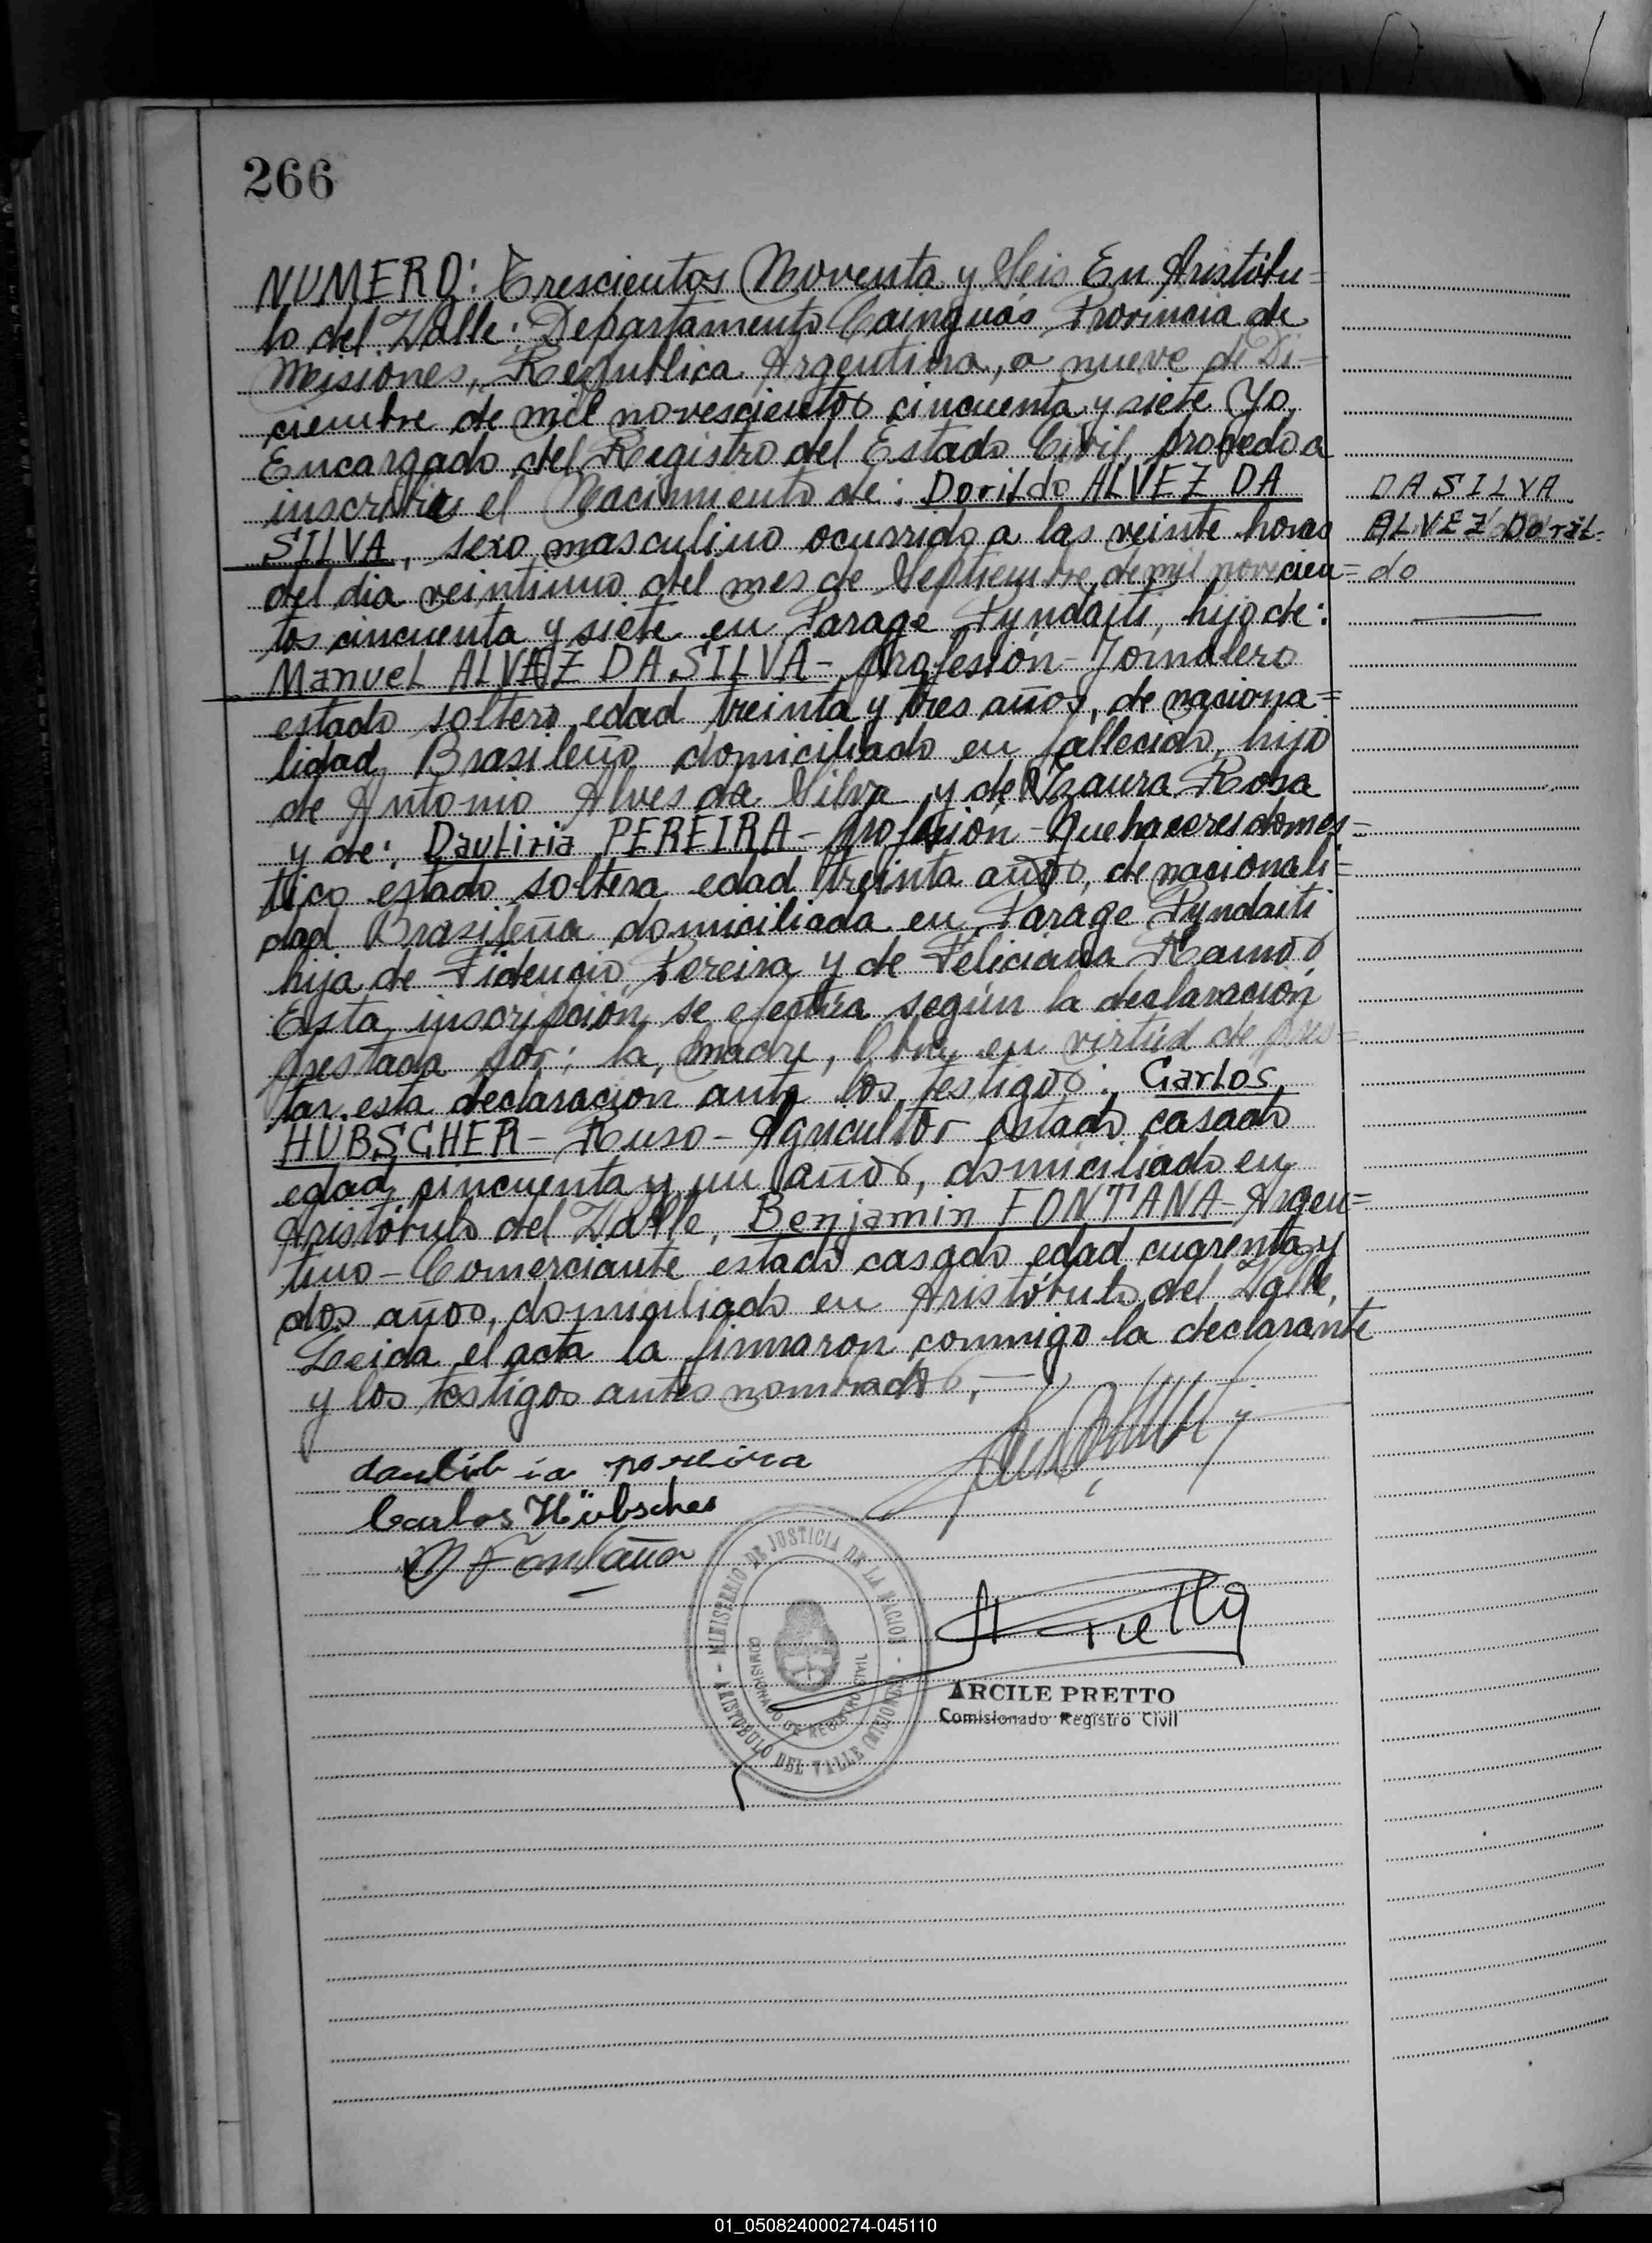 266
NUMERO: Trescientos Noventa y Seis En Aristóbu=
lo del Valle: Departamento Cainguás Provincia de
Misiones, Republica Argentina, a nueve de Di=
ciembre de mil novescientos cincuenta y siete Yo,
Encargado del Registro del Estado Civil, procedo a
inscribir el Nacimiento de: Dorildo ALVEZ DA
SILVA, sexo masculino ocurrido a las veinte horas
del dia veintiuno del mes de Septiembre de mil novecien=
tos cincuenta y siete en Parage Pyndaiti, hijo de:
Manuel ALVAEZ DA SILVA - profesión - Jornalero
estado soltero, edad treinta y tres años, de naciona=
lidad Brasileño domiciliado en fallecido, hijo
de Antonio Alves da Silva y de Yzaura Rosa
y de: Dautiria PEREIRA - profesion - Quehaceres domes=
tico estado soltera edad treinta años, de nacionali=
dad Brasileña domiciliada en Parage Pyndaiti
hija de Fidencio Pereira y de Feliciana Ramos
Esta inscripción se efectúa según la declaración
prestada por: la madre, Obra en virtud de pres=
tar esta declaracion ante los testigos: Carlos
HÜBSCHER - Ruso - Agricultor Estado casado
edad cincuenta y un años, domiciliado en
Aristóbulo del Valle, Benjamin FONTANA - Argen=
tino - Comerciante estado casado edad cuarenta y
dos años, domiciliado en Aristóbulo del Valle,
Leida el acta la firmaron conmigo la declarante
y los testigos antes nombrados,—
DA SILVA
ALVEZ Doril=
do
pereira
Carlos Hübscher
Fontana
MINISTERIO DE JUSTICIA DE LA NACION
COMISIONADO DE REGISTRO CIVIL
ARISTOBULO DEL VALLE (MISIONES)
A Pretto
ARCILE PRETTO
Comisionado Registro Civil
01_050824000274-045110